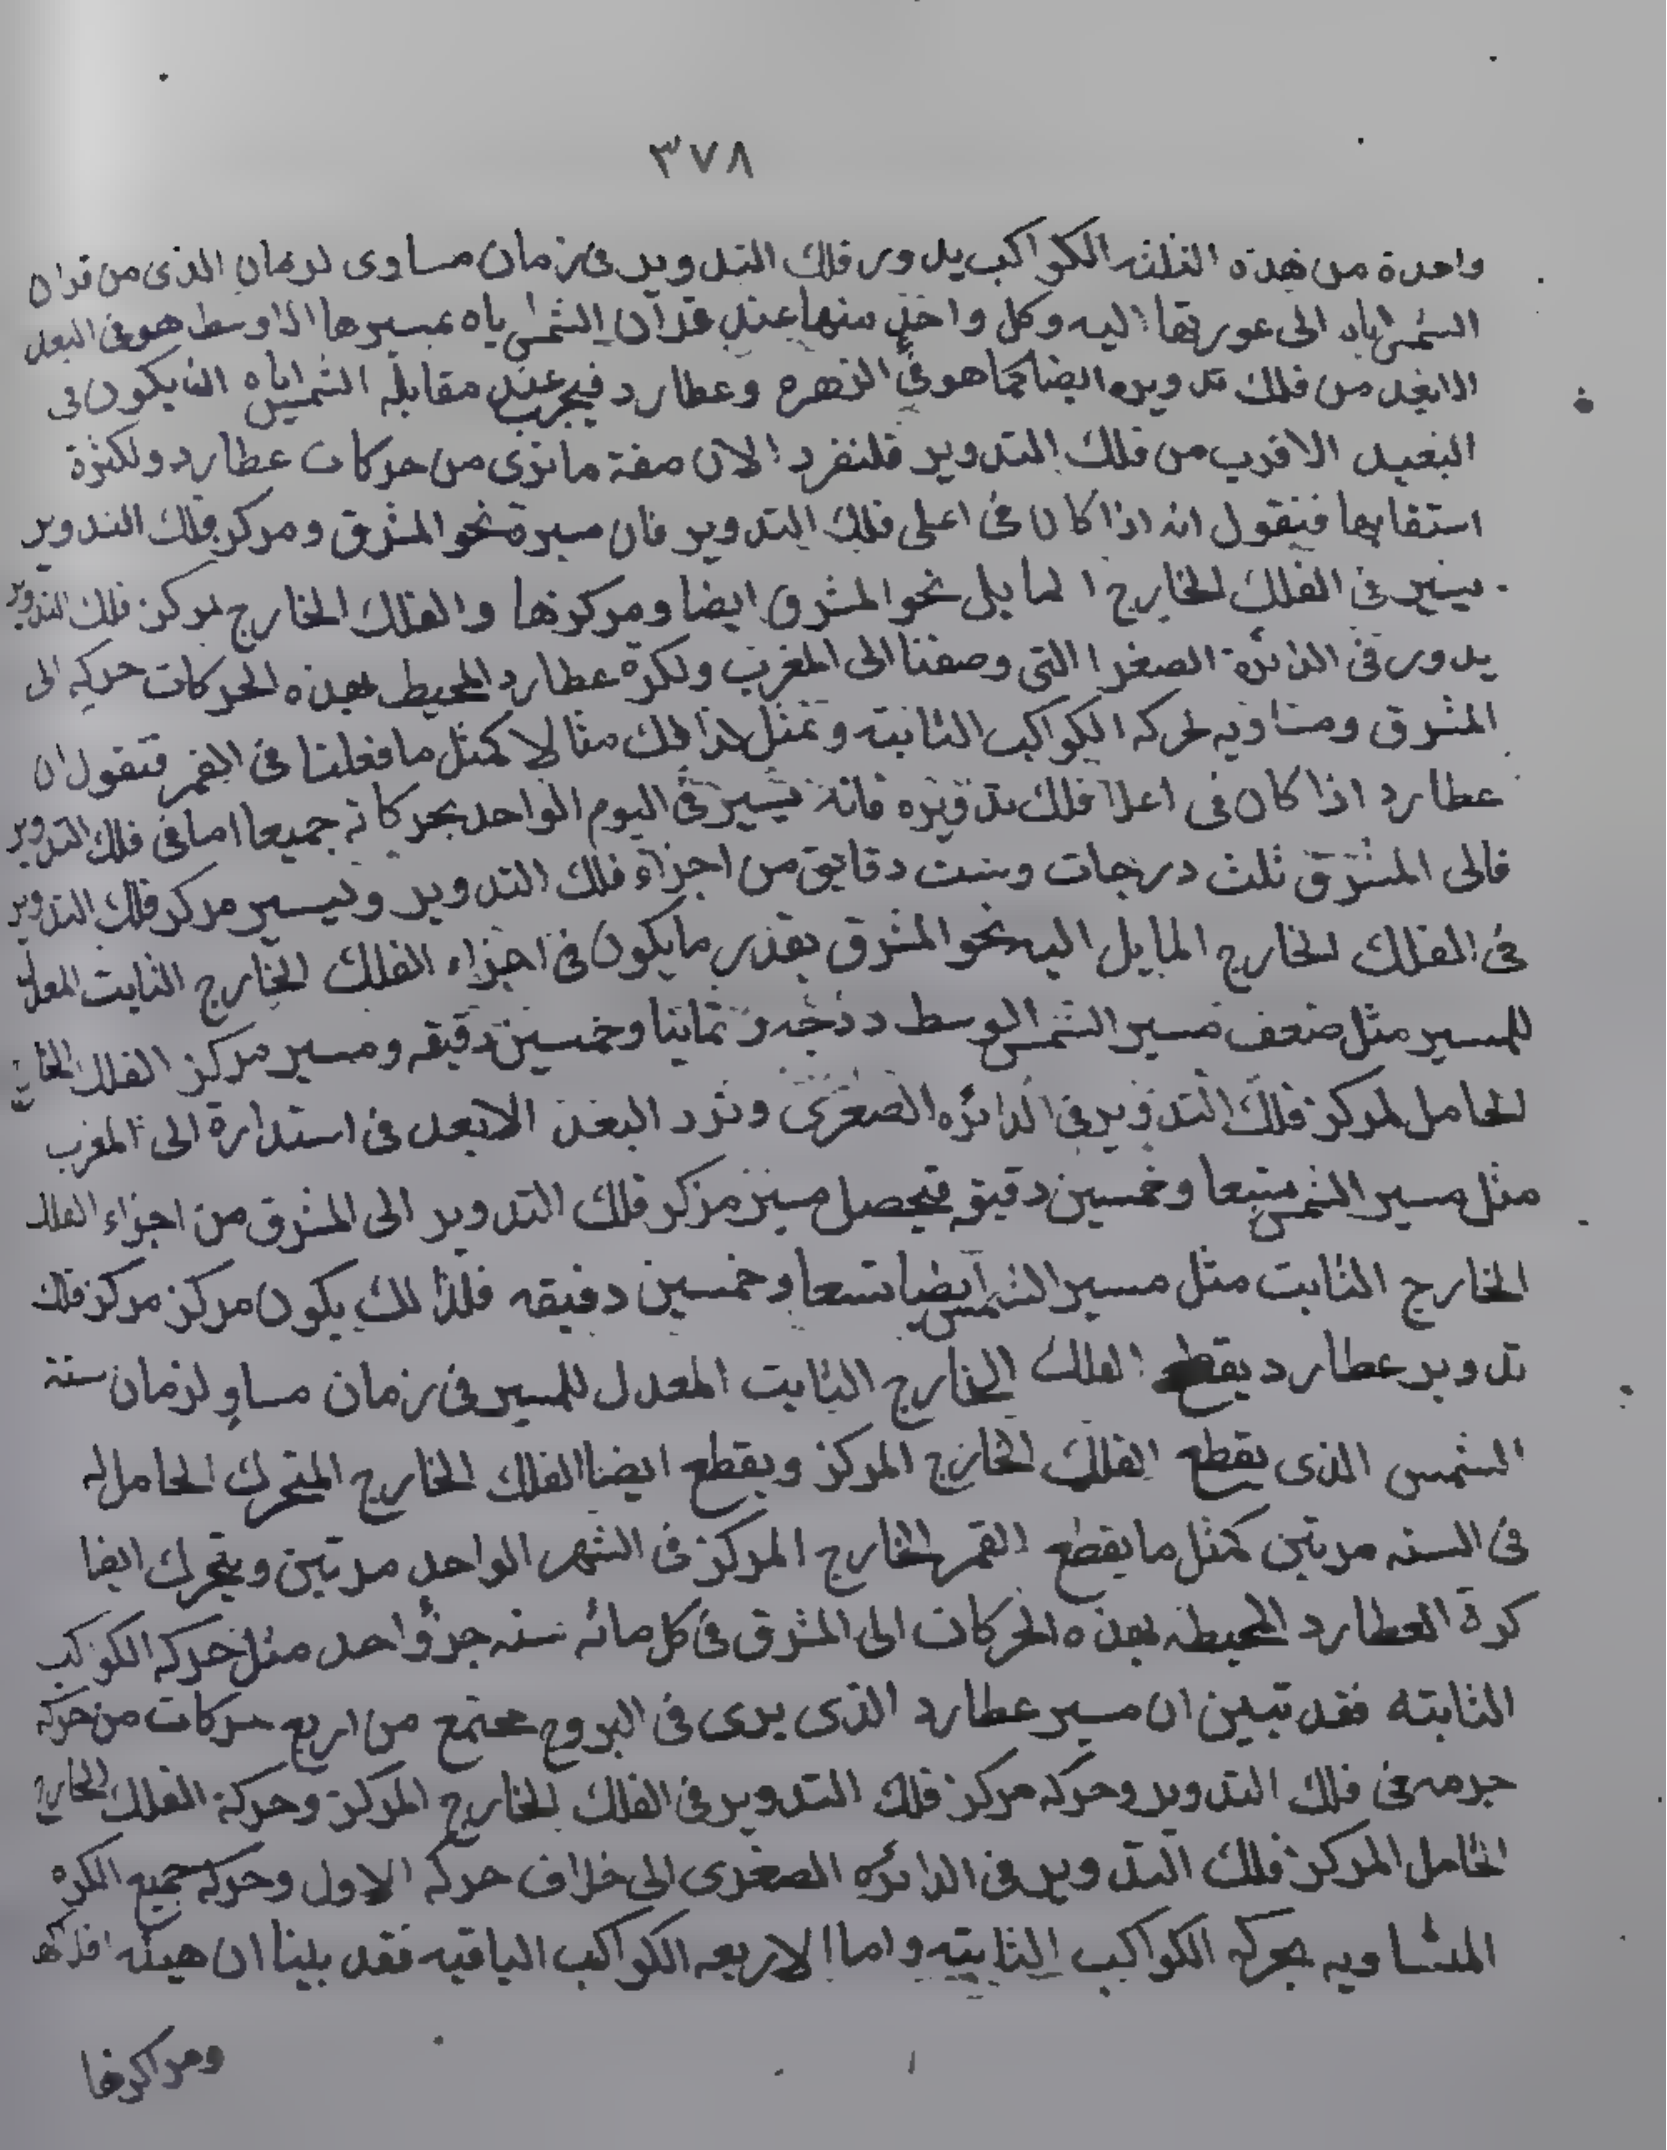 ٣٧٨
واحدة من هذه الثلثه الكواكب يدور فلك التدوير فى زمان مساوى لزمان الذى من قران
الشمس اياه الى عورتها اليه وكل واحد منها عند قران الشمس اياه بمسيرها الاوسط هو فى البعد
الابعد من فلك تدويره ايضا كما هو فى الزهره وعطارد فيجب عند مقابلة الشمس اياه ان يكون فى
البعيد الاقرب من فلك التدوير فلنفرد الان صفة ما نرى من حركات عطارد ولكثرة
استقابها فنقول انه اذا كان فى اعلى فلك التدوير فان مسيرة نحو المشرق ومركز فلك التدوير
يسير فى الفلك الخارج المايل نحو المشرق ايضا ومركزها والفلك الخارج مركز فلك التدوير
يدور فى الدائرة الصغرا التى وصفنا الى المغرب ولكرة عطارد المحيط بهذه الحركات حركه الى
المشرق ومتساويه لحركه الكواكب الثابته ونمثل لذالك مثالا كمثل ما فعلنا فى القمر فنقول ان
عطارد اذا كان فى اعلا فلك تدويره فانه يسير فى اليوم الواحد بحركاته جميعا اما فى فلك التدوير
فالى المشرق ثلث درجات وست دقايق من اجزاء فلك التدوير وليسير مركز فلك التدوير
فى الفلك الخارج المايل اليه نحو المشرق بقدر ما يكون فى اجزاء الفلك الخارج الثابت المعدل
للمسير مثل ضعف مسير الشمس الوسط درجه وثمانيا وخمسين دقيقه ومسير مركز الفلك الخارج
الحامل لمركز فلك التدوير فى الدائره الصغرى ونرد البعد الابعد فى استدارة الى المغرب
مثل مسير الشمس تسعا وخمسين دقيقه فيحصل مسير مركز فلك التدوير الى المشرق من اجزاء الفلك
الخارج الثابت مثل مسير الشمس ايضا تسعا وخمسين دقيقه فلذالك يكون مركز مركز فلك
تدوير عطارد يقطع الفلك الخارج الثابت المعدل للمسير فى زمان مساوٍ لزمان سنة
الشمس الذى يقطع الفلك الخارج المركز ويقطع ايضا الفلك الخارج المتحرك الحامل له
فى السنه مرتين كمثل ما يقطع القمر الخارج المركز فى الشهر الواحد مرتين ويتحرك ايضا
كرة العطارد المحيطه بهذه الحركات الى المشرق فى كل مائه سنه جزؤ احد مثل حركه الكواكب
الثابته فقد تبين ان مسير عطارد الذى يرى فى البروج مجتمع من اربع حركات من حركه
جرمه فى فلك التدوير وحركه مركز فلك التدوير فى الفلك الخارج المركز وحركة الفلك الخارج
الحامل المركز فلك التدوير فى الدائره الصغرى الى خلاف حركه الاول وحركه جميع الكره
المتساويه بحركه الكواكب الثابته واما الاربعه الكواكب الباقيه فقد بينا ان هيئه افلاكها
ومراكزها